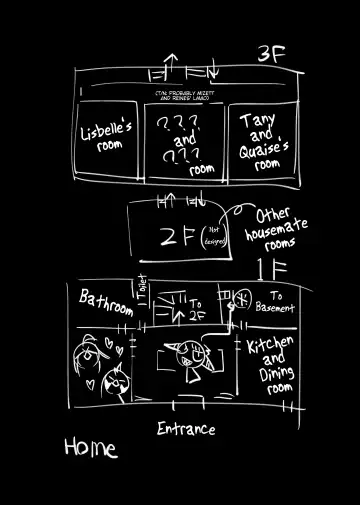 3F
(T/N: PROBABLY MIZETT
AND REINES' LAMCO)
Lisbelle's
room
???
and
???
room
Tany
and
Quaise's
room
2F
(Not
designed)
Other
housemate
rooms
1F
Bathroom
Toilet
To
2F
To
Basement
Kitchen
and
Dining
room
Entrance
Home